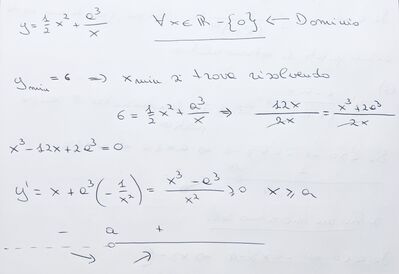 y = 1/2 x² + a³/x    ∀x∈ℝ - {0} ← Dominio
ymin = 6 ⇒ xmin si trova risolvendo
6 = 1/2 x² + a³/x ⇒ 12x/2x = x³+2a³/2x
x³-12x+2a³=0
y' = x + a³(-1/x²) = x³-a³/x² ≥0 x ≥ a
- a +